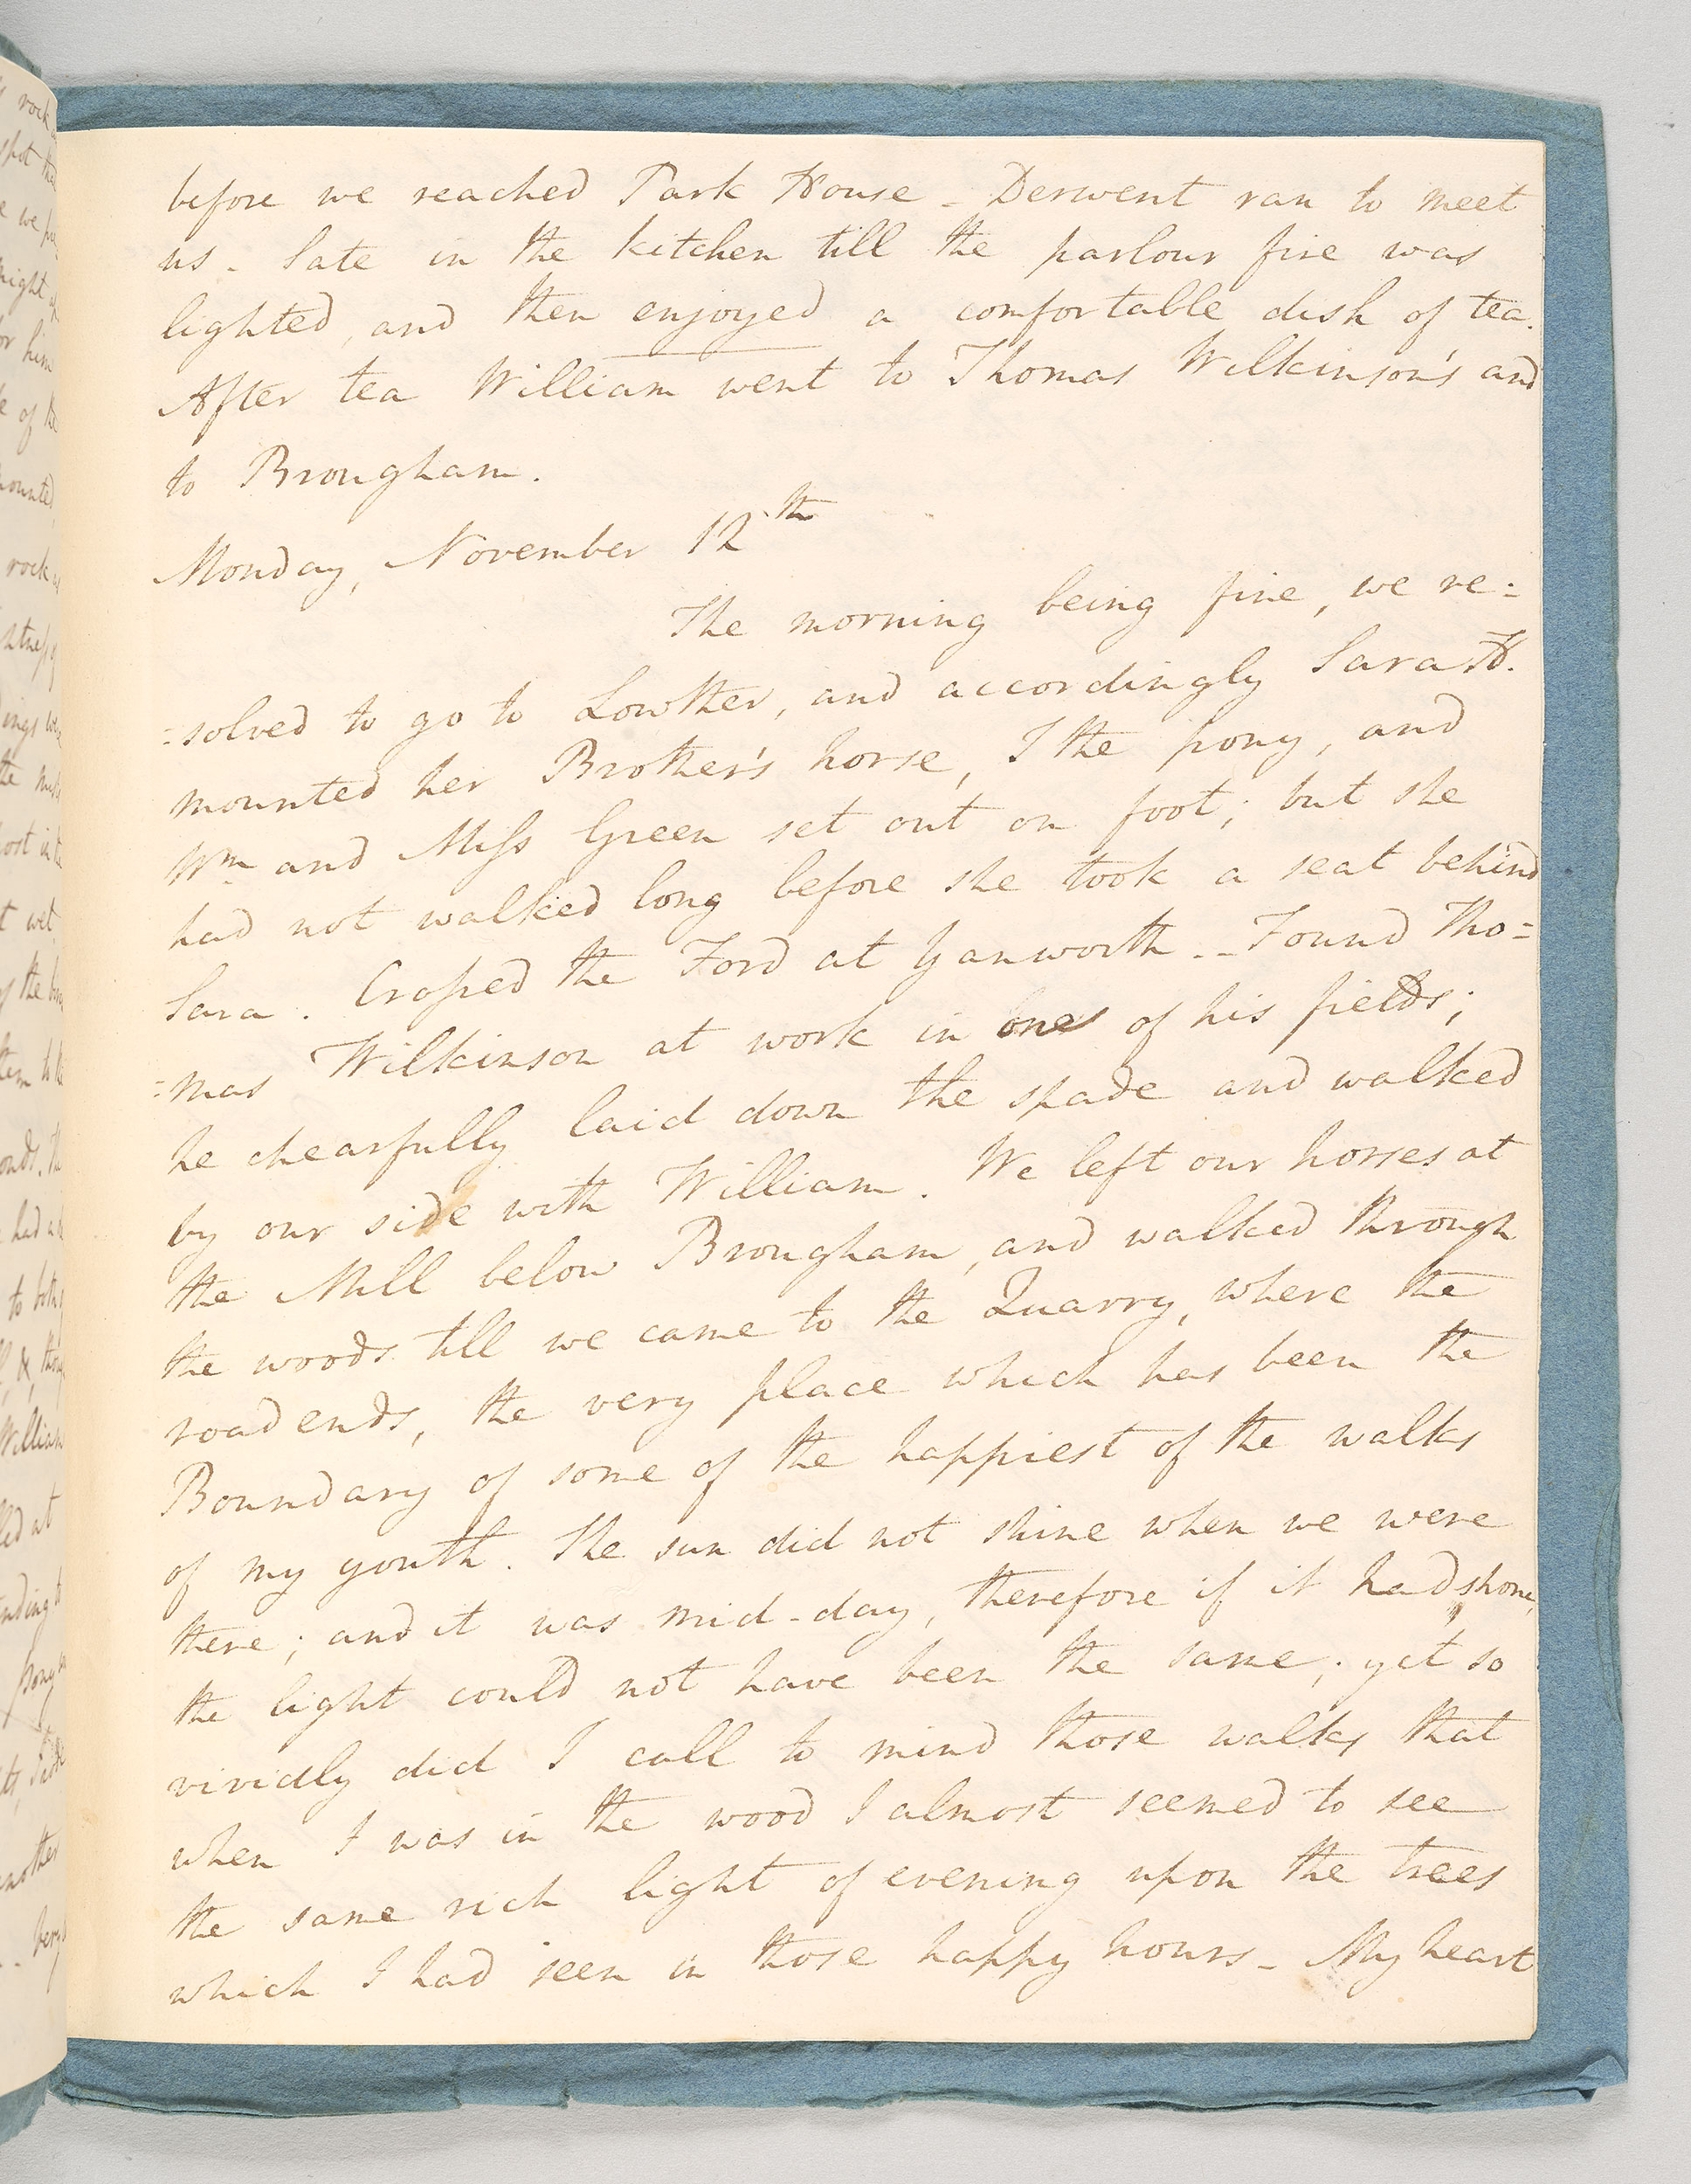 before we reached Park House - Derwent ran to meet
us - Sate in the kitchen till the parlour fire was
lighted, and then enjoyed a comfortable dish of tea.
After tea William went to Thomas Wilkinson's and
to Brougham.
Monday, November 12th
The morning being fine, we re=
=solved to go to Lowther, and accordingly Sara H.
mounted her Brother's horse, I the pony, and
Wm and Miss Green set out on foot; but she
had not walked long before she took a seat behind
Sara. Crossed the Ford at Yanworth -- Found Tho=
=mas Wilkinson at work in one of his fields;
he chearfully laid down the spade and walked
by our side with William. We left our horses at
the Mill below Brougham, and walked through
the woods till we came to the Quarry, where the
road ends, the very place which has been the
Boundary of some of the happiest of the walks
of my youth. The sun did not shine when we were
there; and it was mid-day, therefore if it had shone,
the light could not have been the same; yet so
vividly did I call to mind those walks that
when I was in the wood I almost seemed to see
the same rich light of evening upon the trees
which I had seen in those happy hours - My heart